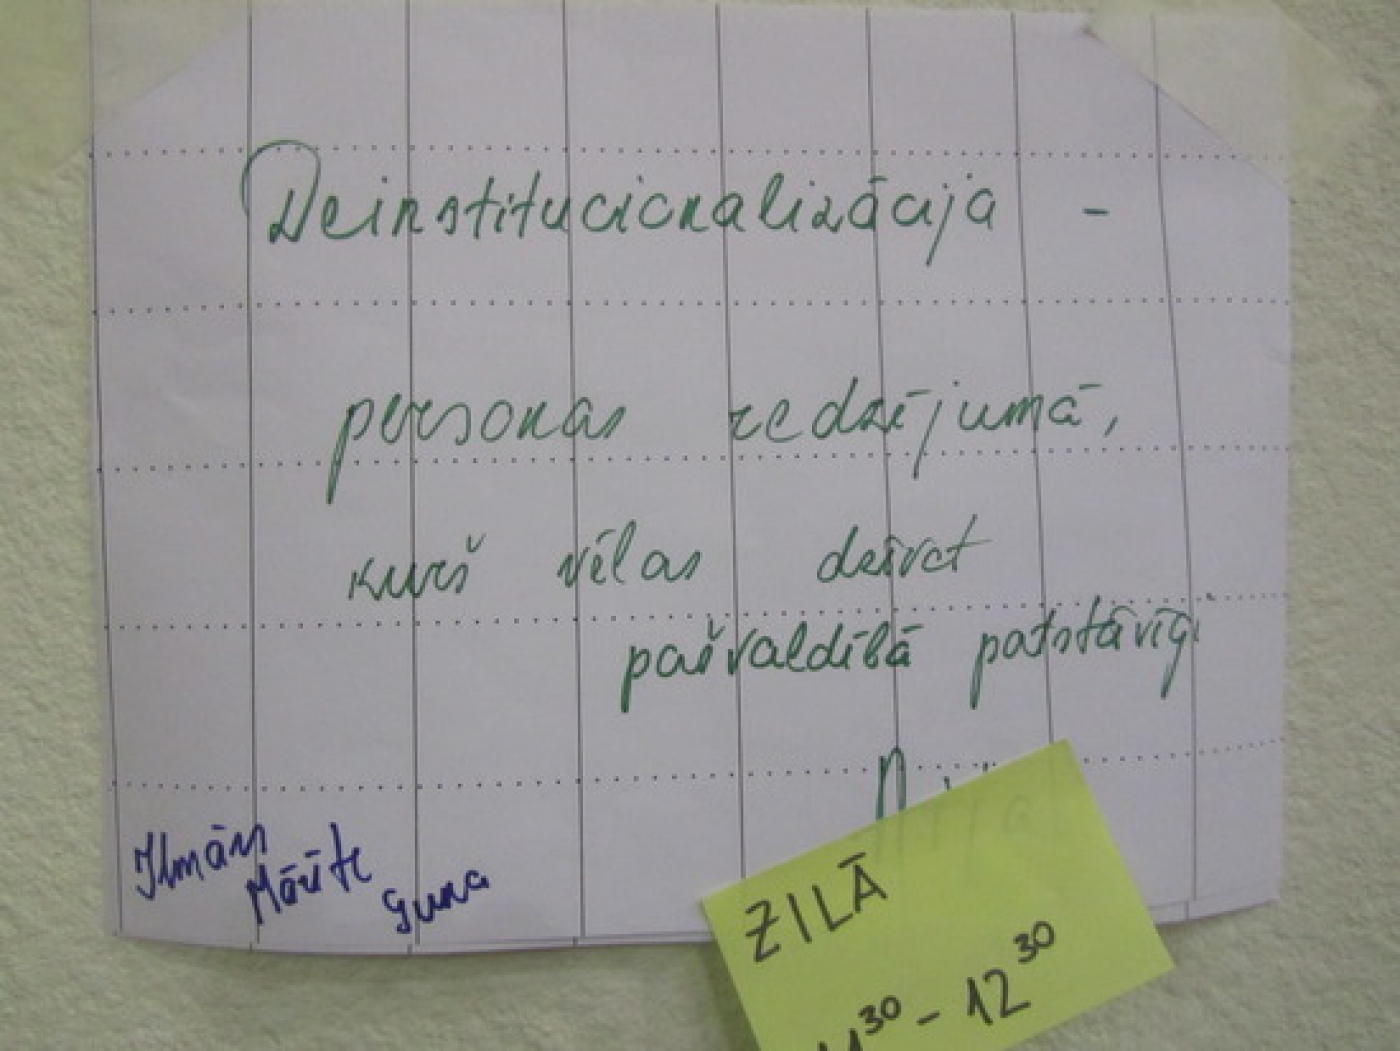 Deinstitucionalizācija -
personas redzējumā,
kurš vēlas dzīvot
pašvaldībā patstāvīgi
Ilmārs
Mārīte
Guna
ZILĀ
11³⁰ - 12³⁰